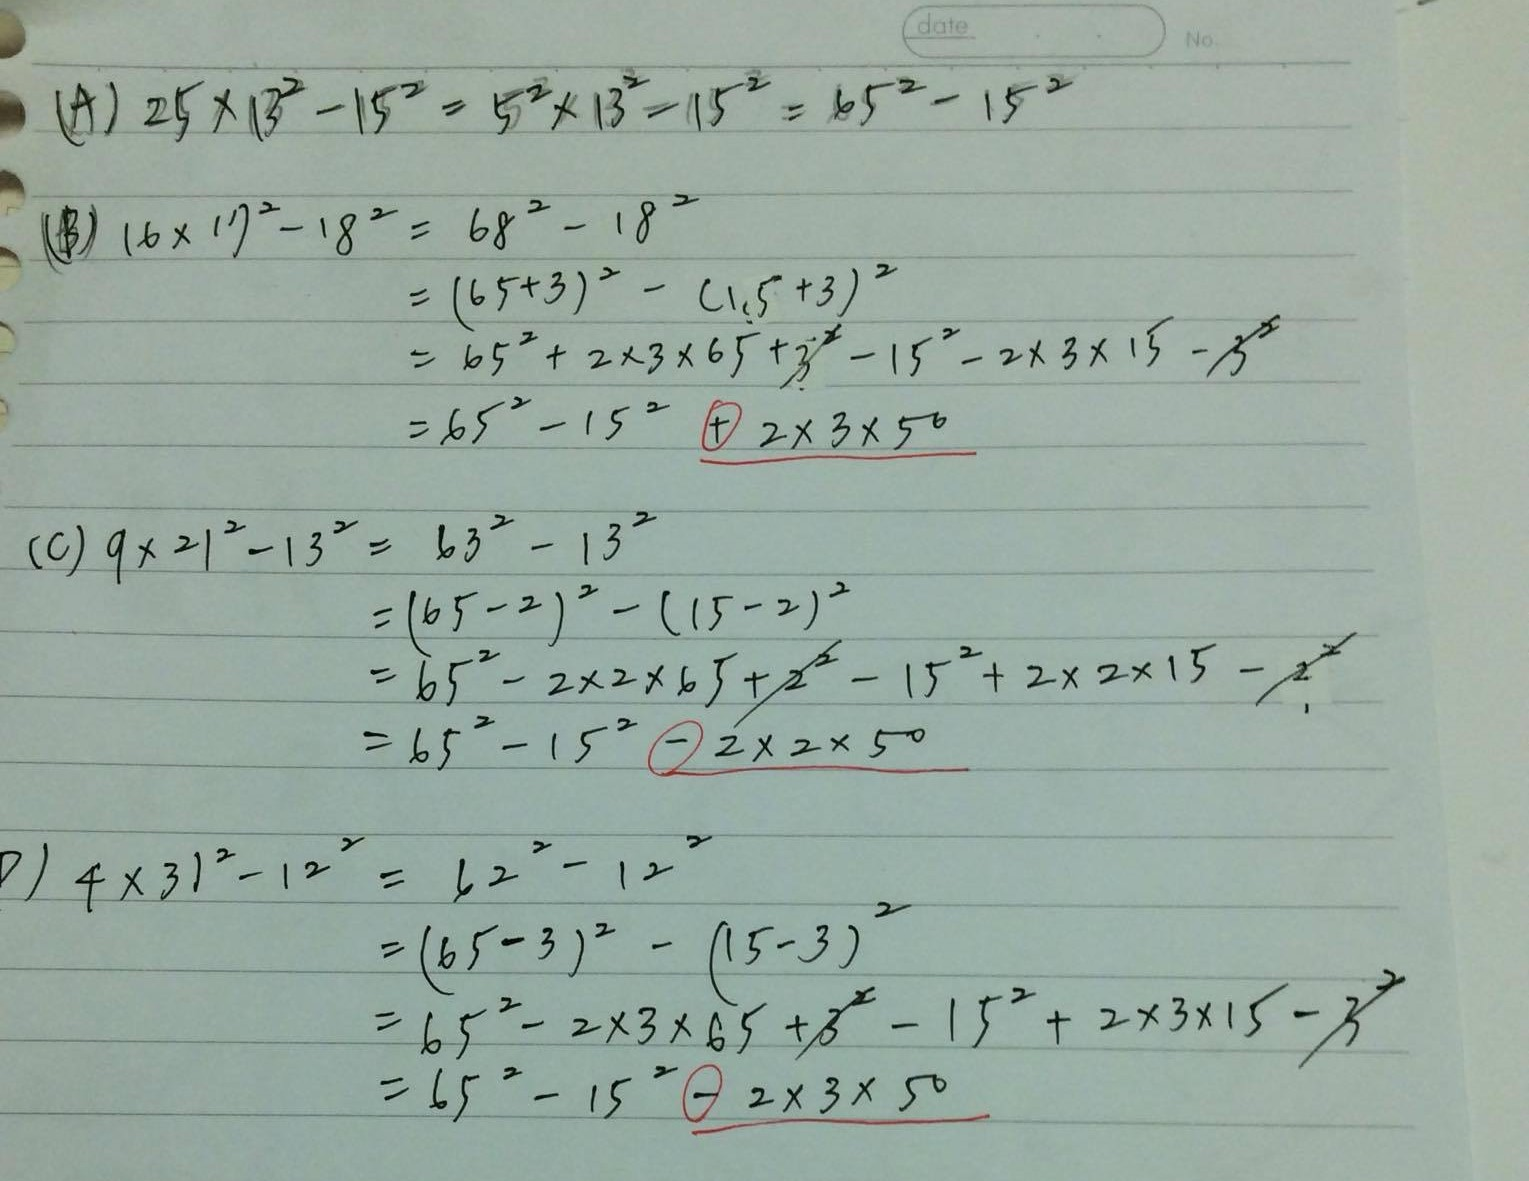 date
No.
(A) 25 × 13² - 15² = 5² × 13² - 15² = 65² - 15²
(B) 16 × 17² - 18² = 68² - 18²
= (65+3)² - (15+3)²
= 65² + 2×3×65 + 3² - 15² - 2×3×15 - 3²
= 65² - 15² + 2×3×50
(C) 9 × 21² - 13² = 63² - 13²
= (65-2)² - (15-2)²
= 65² - 2×2×65 + 2² - 15² + 2×2×15 - 2²
= 65² - 15² - 2×2×50
D) 4 × 31² - 12² = 62² - 12²
= (65-3)² - (15-3)²
= 65² - 2×3×65 + 3² - 15² + 2×3×15 - 3²
= 65² - 15² - 2×3×50